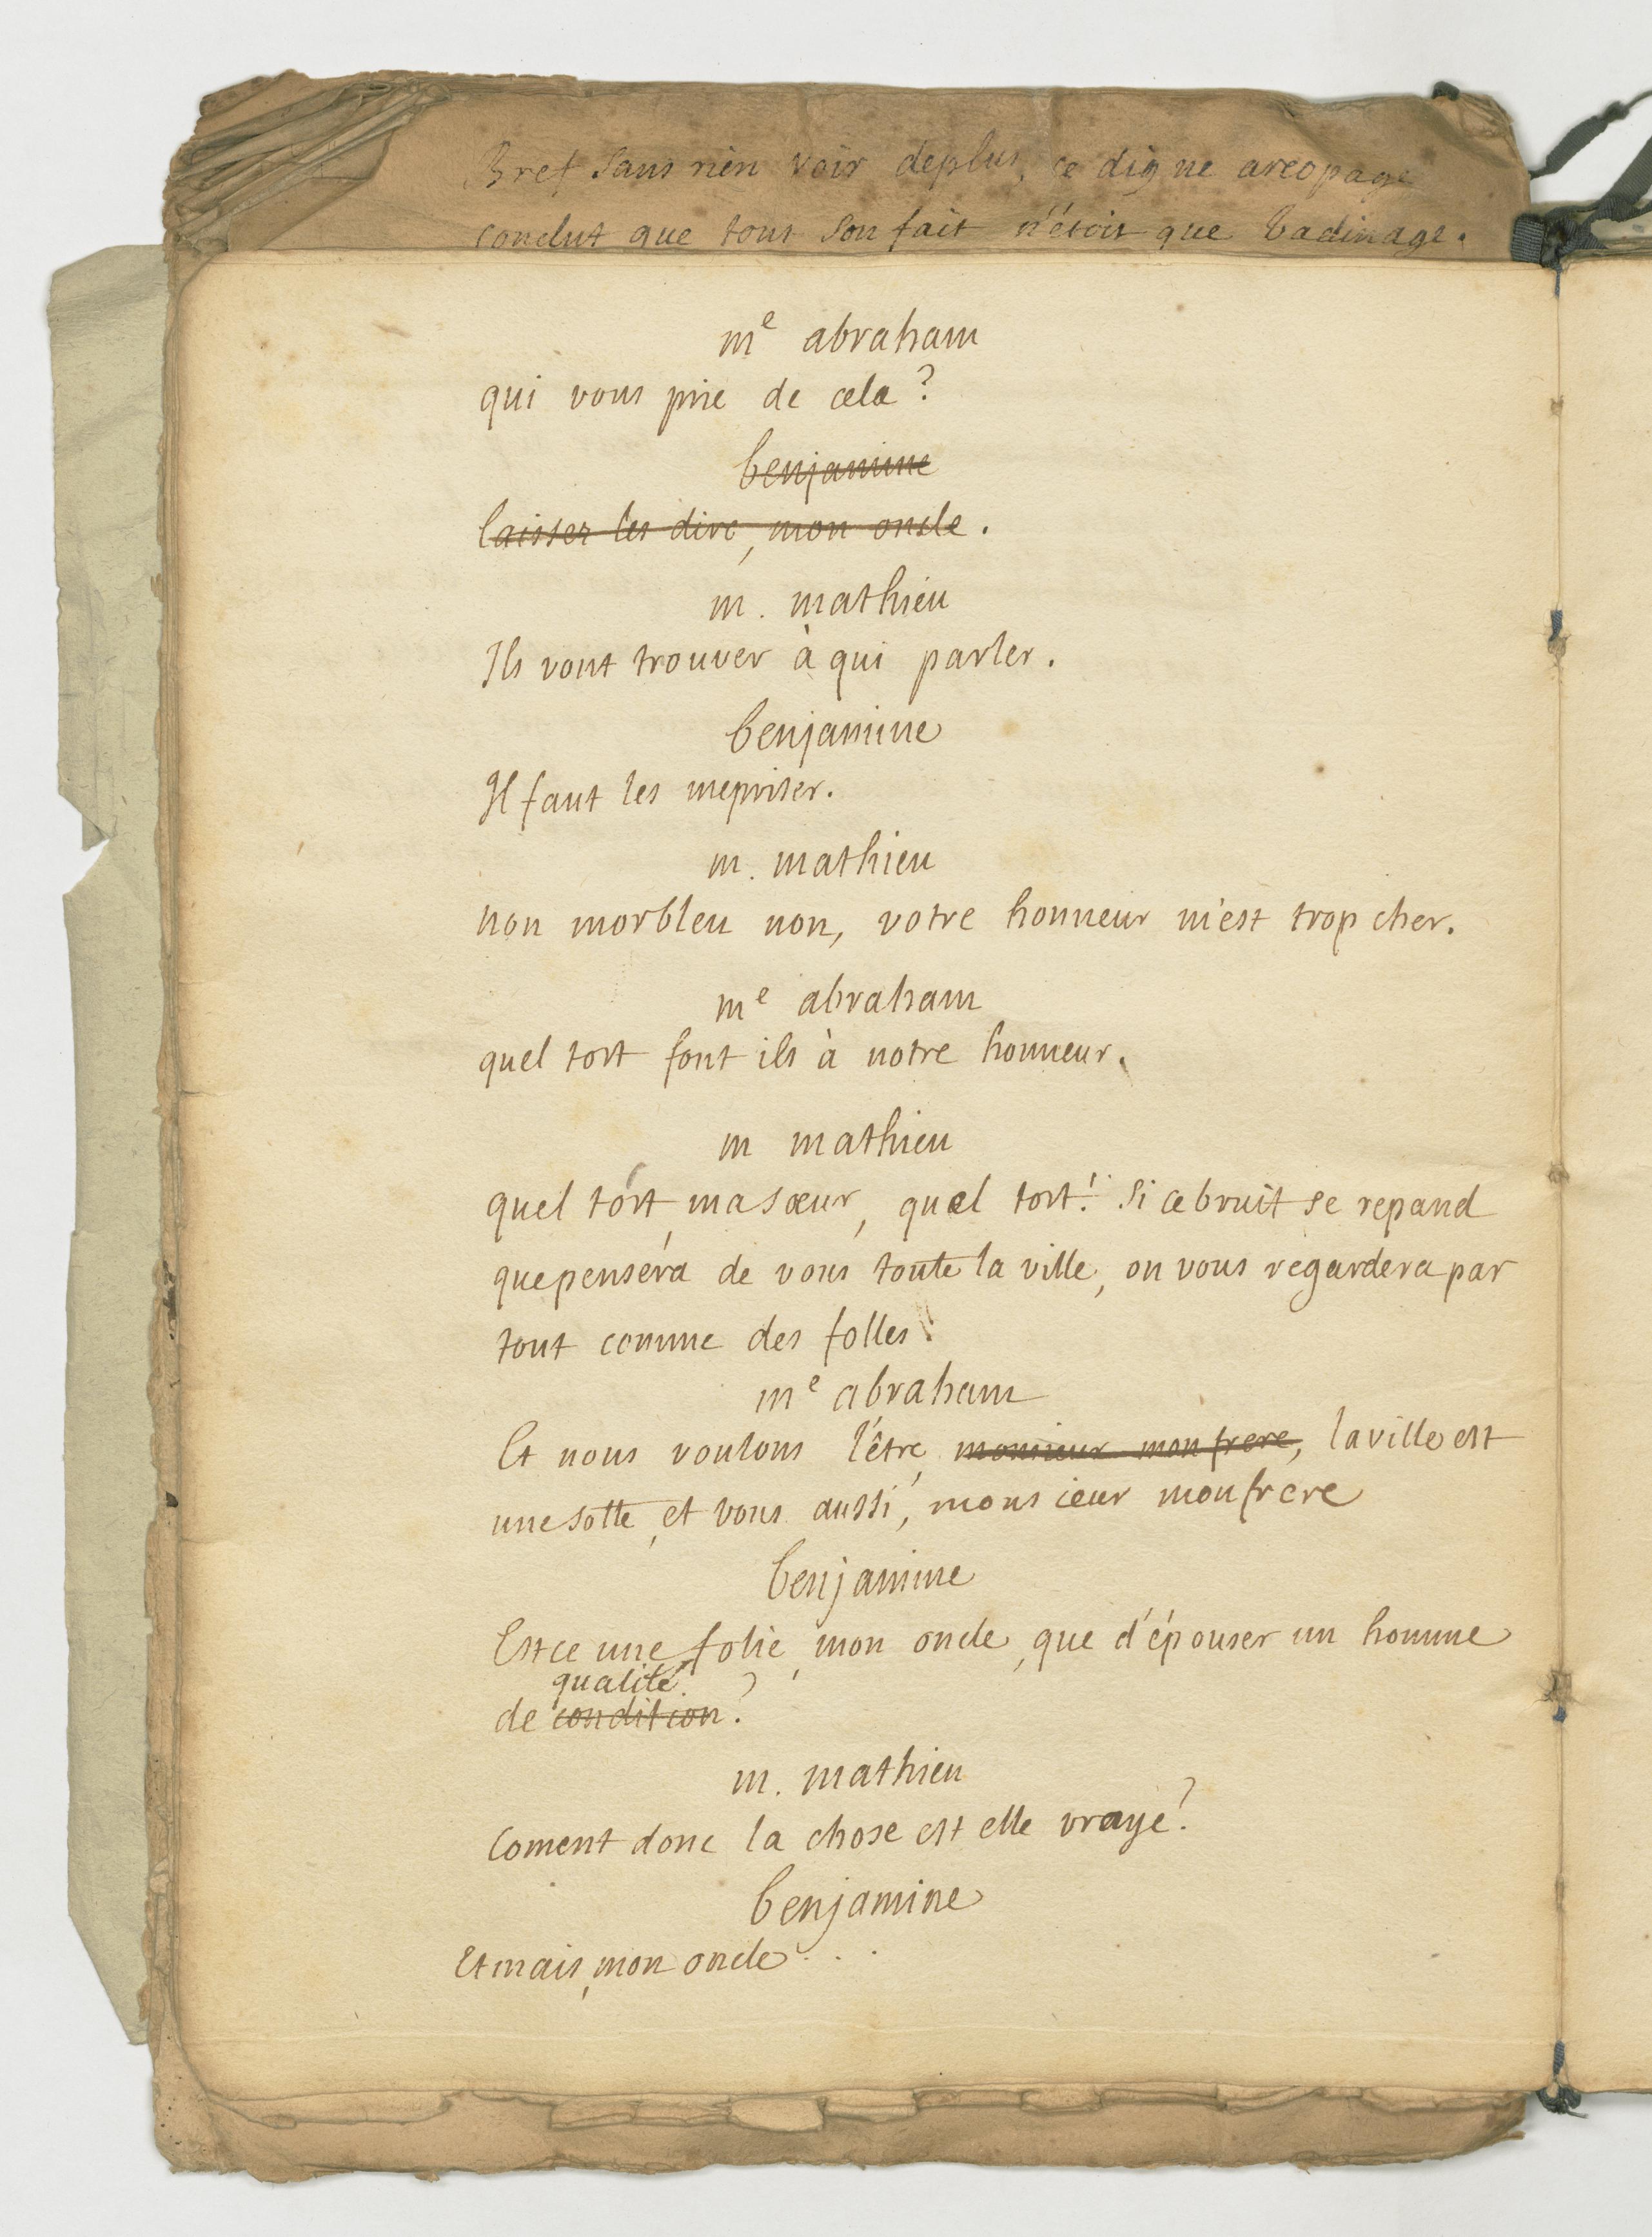 Bref sans rien voir deplus, ce digne areopage
conclut que tout son fait n'étoit que badinage.
me abraham
qui vous prie de cela ?
benjamine
laisser les dire, mon oncle.
m. mathieu
Ils vont trouver à qui parler.
benjamine
Il faut les mepriser.
m. mathieu
non morbleu non, votre honneur m'est trop cher.
me abraham
quel tort font ils à notre honneur.
m mathieu
quel tort, ma sœur, quel tort! si ce bruit se repand
que pensera de vous toute la ville, on vous regardera par
tout comme des folles.
me abraham
Et nous voulons l'être, monsieur mon frere, la ville est
une sotte, et vous aussi, monsieur mon frere
benjamine
Est ce une folie, mon oncle, que d'épouser un homme
qualité
de condition ?
m. mathieu
Coment donc la chose est elle vraye ?
benjamine
Et mais, mon oncle . . .